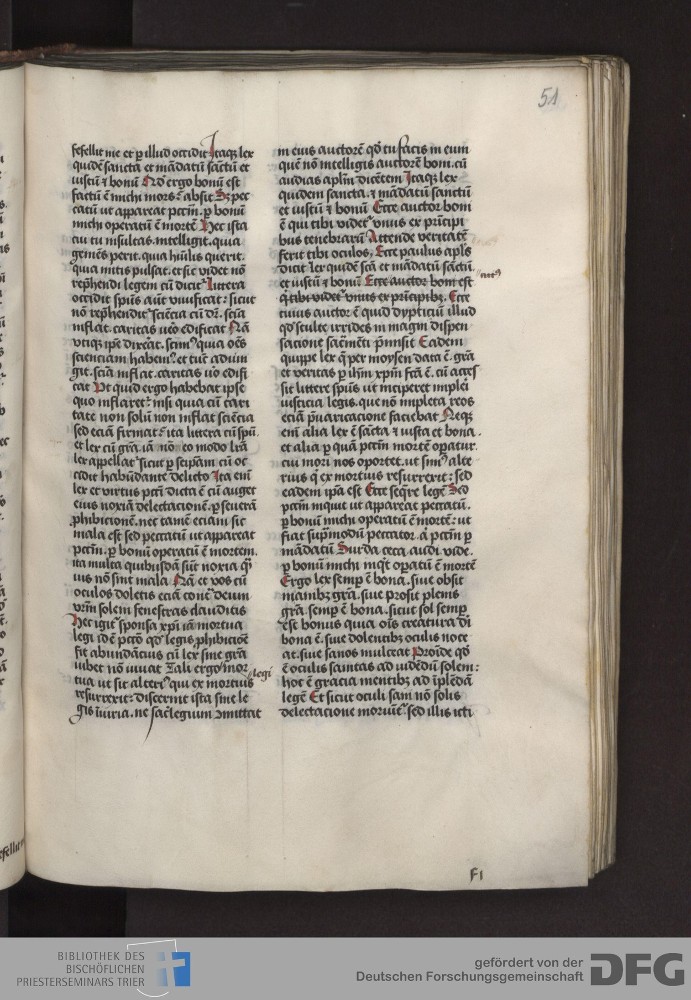 51
fefellit me et ꝑ illud occidit Itaqꝫ lex
quidē sancta et mādatū sāctū et
iustū ⁊ bonū Qd ergo bonū est
factū ē michi mors ē absit Sꝫ pec
catū ut appareat pctm̄. ꝑ bonū
michi operatū ē mortē Hec ista
au tu insultas. intelligit. quia
gemēs perit. quia hūilis querit.
quia mitis pulsat. et sic videt nō
rep̄hendi legem cū dicit Littera
occidit spūs aūt viuificat: sicut
nō rep̄hendit sciēcia cū dr̄. sciā
inflat. caritas ūo edificat Nā
vtiqꝫ ip̄e dixāt. scimꝰ quia oēs
scienciam habemꝰ. et tūc adiun
git. sciā inflat. caritas ūo edifi
cat Vt quid ergo habebat ipse
quo inflaret nisi quia cū cari
tate non solū non inflat sciēcia
sed eciā firmat ita littera cū spū.
et lex cū grā. iā nō eo modo lrā
lex appellat sicut ꝑ seip̄am cū oc
cidit habūdante delicto Ita enī
lex et virtus pctī dicta ē cū auget
eius noxiā delectacionē. ꝑ seuerā
ꝓhibicionē. nec tamē eciam sic
mala est sed peccatū ut appareat
pctm̄. ꝑ bonū operatū ē mortem.
ita multa quibusdā sūt noxia q̄ꝫ
uis nō sint mala Nā et vos cū
oculos doletis eciā cont deum
vr̄m solem fenestras clauditis
Hec igitᷣ sponsa xp̄i iā mortua
legi id ē pctō qd legis ꝓhibiciōe
fit abundācius cū lex sine grā
iubet nō iuuat Tali ergo mor
legi
tua ut sit alteriꝰ qui ex mortuis
resurrexit: discernit ista sine le
gis iniuria. ne sac̄legium ꝯmittat
in eius auctorē qd tu facis in eum
quē nō intelligis auctorē boni. cū
audias apl̄m dicētem Itaqꝫ lex
quidem sancta. ⁊ mādatū sanctū
et iustū ⁊ bonū Ecce auctor boni
ē qui tibi videtᷣ vnus ex p̄ncipi
bus tenebrarū Attende veritatē
ferit tibi oculos. Ecce paulus apl̄s
dicit lex quidē scā et mādatū sāctū.
et iustū ⁊ bonū Ecce auctor boni est
q̄ tibi videt vnus ex p̄ncipibꝫ. Ecce
cuius auctor ē quid dypticiū illud
qd sculee irrides in magni dispen
sacione sacm̄enti p̄misit Eadem
quippe lex q̄ per moysen data ē. grā
et veritas ꝑ ih̄m xp̄m fc̄a ē. cū acces
sit littere spūs ut inciperet implēi
iusticia legis. que nō impleta reos
eciā p̄uaricacione faciebat Neqꝫ
enī alia lex ē sancta ⁊ iusta et bona.
et alia ꝑ quā pctm̄ mortē oꝑatur.
cui mori nos oportet. ut simꝰ alte
rius q̄ ex mortuis resurrexit: sed
eadem ip̄a est Ecce seq̄re legē Sed
pctm̄ inque ut appareat peccatū.
ꝑ bonū michi operatū ē mortē: ut
fiat sup̄ modū peccator. a pctm̄ ꝑ
mādatū Surda ceca audi vide.
ꝑ bonū michi inqͥt oꝑatū ē mortē
Ergo lex semꝑ ē bona. siue obsit
inanibꝫ grā. siue prosit plenis
grā. semꝑ ē bona. sicut sol semꝑ
est bonus quia oīs creatura dī
bona ē. siue dolentibꝫ oculis noce
at. siue sanos mulceat Proīde qd
ē oculis sanitas ad vidēdū solem:
hoc ē gracia mentibꝫ ad īplēdā
legē Et sicut oculi sani nō solis
delectacione moriūtᷣ sed illis icti
F1
BIBLIOTHEK DES
BISCHÖFLICHEN
PRIESTERSEMINARS TRIER
gefördert von der
Deutschen Forschungsgemeinschaft
DFG